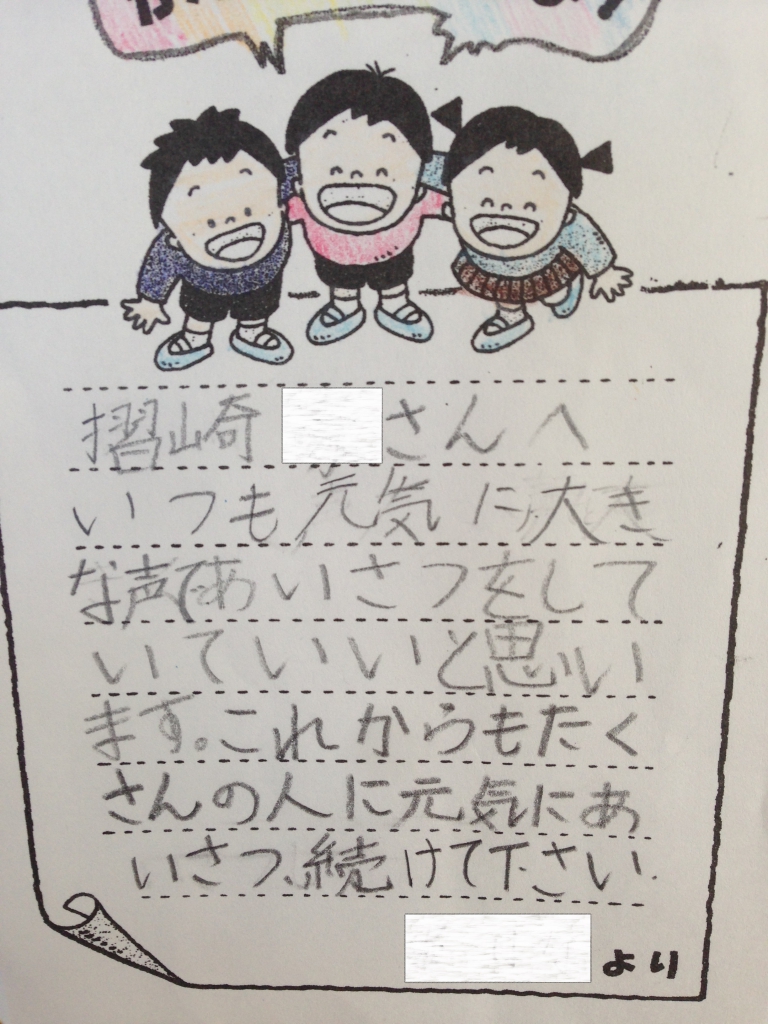 摺崎 さんへ
いつも元気に大き
な声であいさつをして
いていいと思い
ます。これからもたく
さんの人に元気にあ
いさつ、続けて下さい.
より